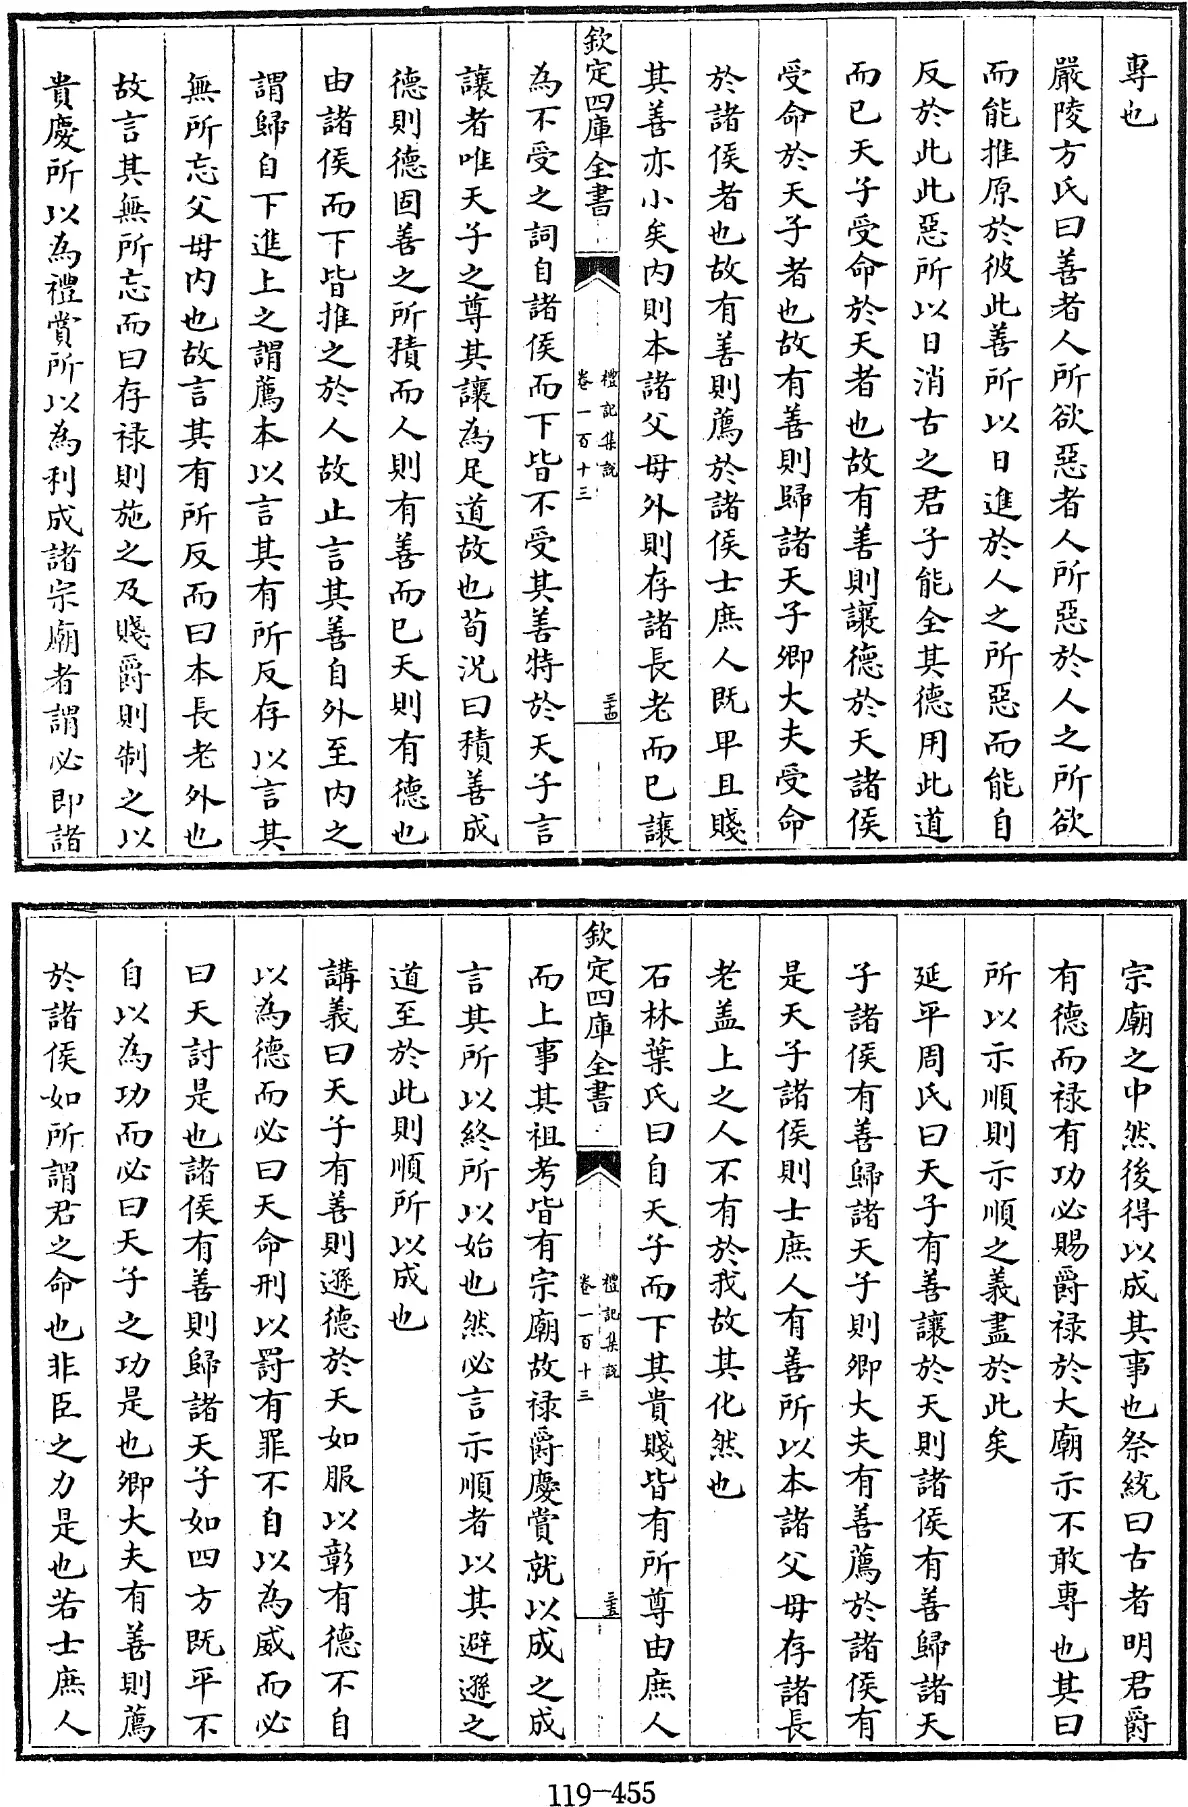 專也
嚴陵方氏曰善者人所欲惡者人所惡於人之所欲
而能推原於彼此善所以日進於人之所惡而能自
反於此此惡所以日消古之君子能全其德用此道
而已天子受命於天者也故有善則讓德於天諸侯
受命於天子者也故有善則歸諸天子卿大夫受命
於諸侯者也故有善則薦於諸侯士庶人既卑且賤
其善亦小矣内則本諸父母外則存諸長老而已讓
欽定四庫全書
禮記集說
卷一百十三
三十四
為不受之詞自諸侯而下皆不受其善特於天子言
讓者唯天子之尊其讓為足道故也荀況曰積善成
德則德固善之所積而人則有善而已天則有德也
由諸侯而下皆推之於人故止言其善自外至内之
謂歸自下進上之謂薦本以言其有所反存以言其
無所忘父母内也故言其有所反而曰本長老外也
故言其無所忘而曰存禄則施之及賤爵則制之以
貴慶所以為禮賞所以為利成諸宗廟者謂必即諸
宗廟之中然後得以成其事也祭統曰古者明君爵
有德而禄有功必賜爵禄於大廟示不敢專也其曰
所以示順則示順之義盡於此矣
延平周氏曰天子有善讓於天則諸侯有善歸諸天
子諸侯有善歸諸天子則卿大夫有善薦於諸侯有
是天子諸侯則士庶人有善所以本諸父母存諸長
老盖上之人不有於我故其化然也
石林葉氏曰自天子而下其貴賤皆有所尊由庶人
欽定四庫全書
禮記集說
卷一百十三
三十五
而上事其祖考皆有宗廟故禄爵慶賞就以成之成
言其所以終所以始也然必言示順者以其避遜之
道至於此則順所以成也
講義曰天子有善則遜德於天如服以彰有德不自
以為德而必曰天命刑以罸有罪不自以為威而必
曰天討是也諸侯有善則歸諸天子如四方既平不
自以為功而必曰天子之功是也卿大夫有善則薦
於諸侯如所謂君之命也非臣之力是也若士庶人
119-455